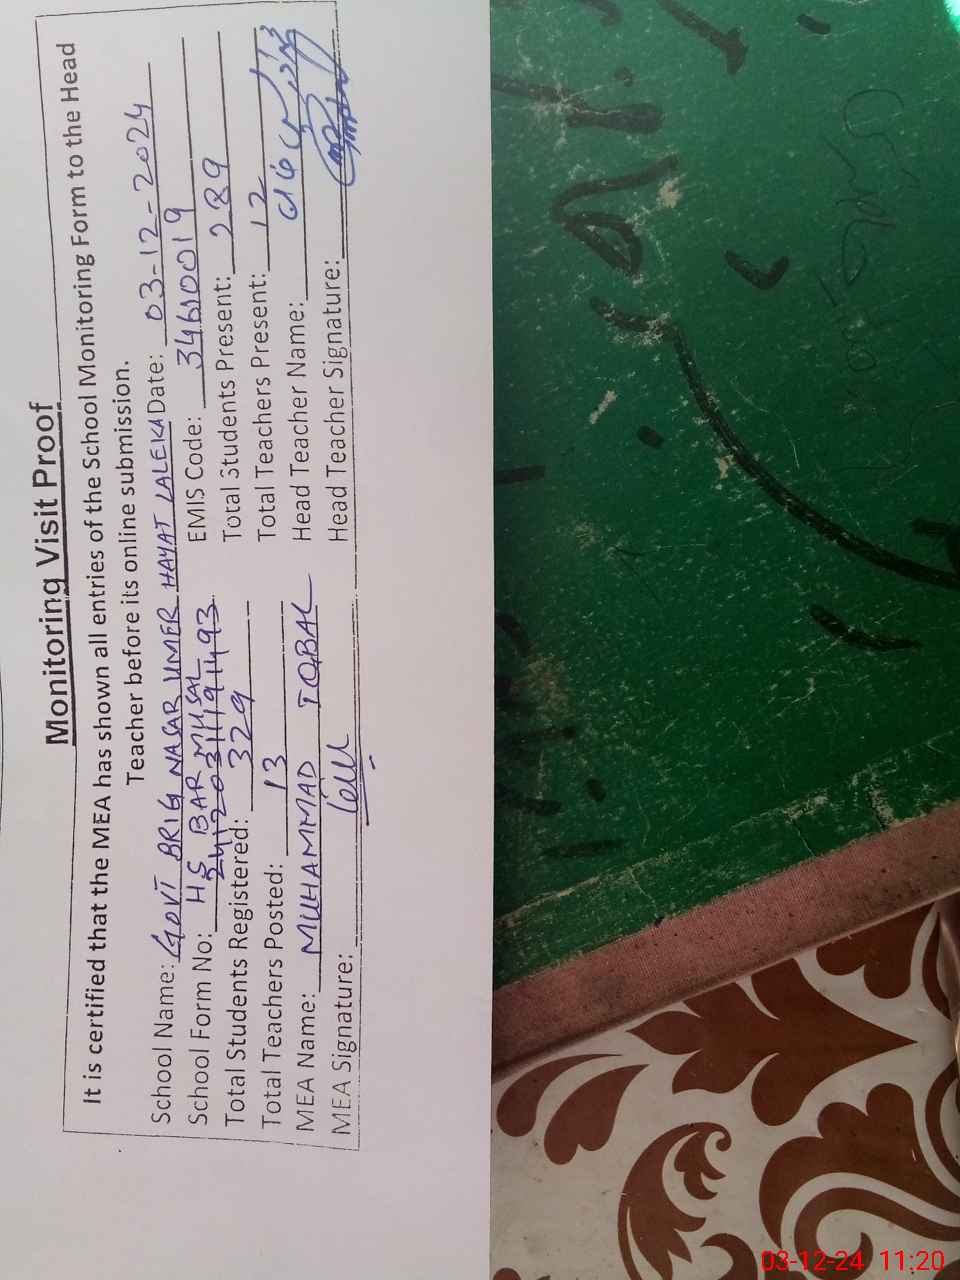 Monitoring Visit Proof
It is certified that the MEA has shown all entries of the School Monitoring Form to the Head
Teacher before its online submission.
School Name: GOVT BRIG NASAR UMER HAYAT LALEKA Date: 03-12-2024
HS BAR MHSAL
School Form No: EMIS Code: 34610019
Total Students Registered: 329 Total Students Present: 289
Total Teachers Posted: 13 Total Teachers Present: 12
MEA Name: MUHAMMAD IQBAL Head Teacher Name:
MEA Signature: Head Teacher Signature:
03-12-24 11:20